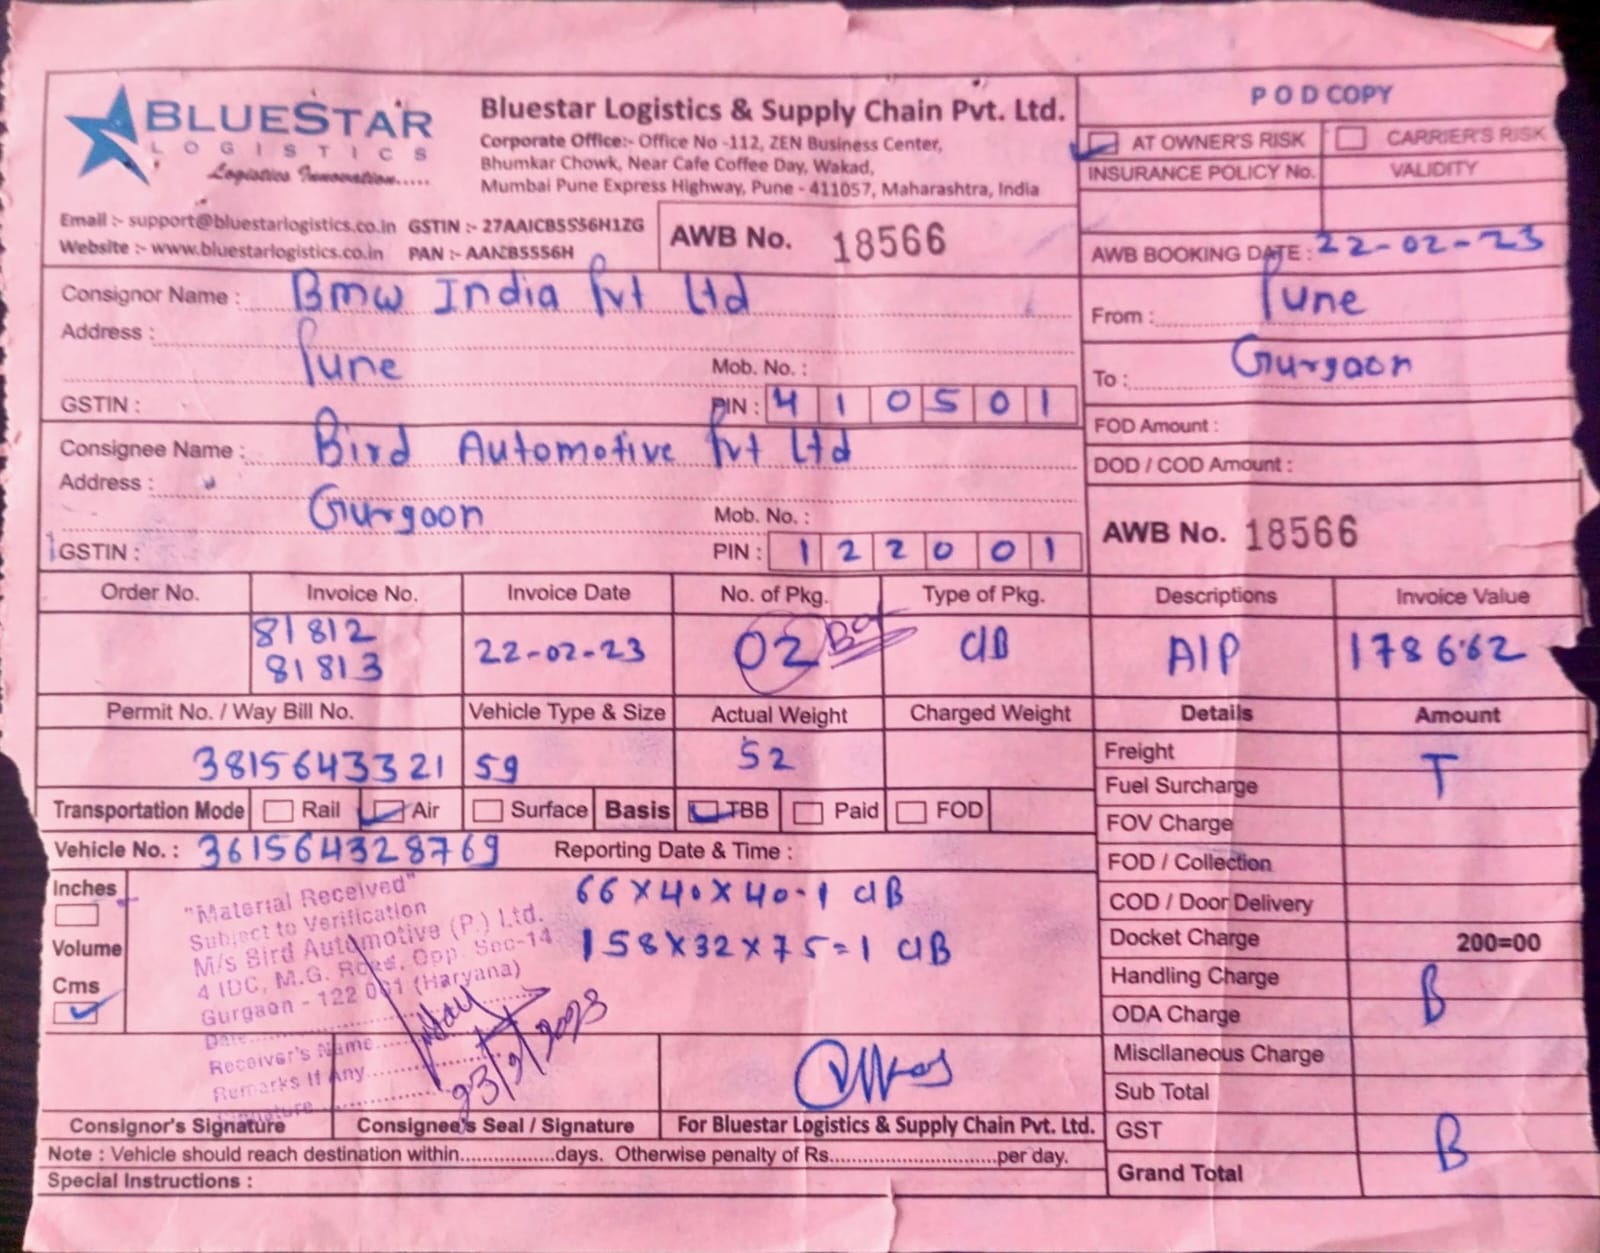 BLUESTAR
LOGISTICS
Logistics Innovation.....
Bluestar Logistics & Supply Chain Pvt. Ltd.
Corporate Office:- Office No -112, ZEN Business Center,
Bhumkar Chowk, Near Cafe Coffee Day, Wakad,
Mumbai Pune Express Highway, Pune - 411057, Maharashtra, India
Email :- support@bluestarlogistics.co.in GSTIN :- 27AAICB5556H1ZG
Website :- www.bluestarlogistics.co.in PAN :- AANCB5556H
AWB No. 18566
POD COPY
AT OWNER'S RISK CARRIER'S RISK
INSURANCE POLICY No. VALIDITY
AWB BOOKING DATE : 22-02-23
From : Pune
To : Gurgaon
FOD Amount :
DOD / COD Amount :
AWB No. 18566
Consignor Name : Bmw India Pvt Ltd
Address :
Pune Mob. No. :
GSTIN : PIN : 410501
Consignee Name : Bird Automotive Pvt Ltd
Address :
Gurgoon Mob. No. :
GSTIN : PIN : 122001
Order No. Invoice No. Invoice Date No. of Pkg. Type of Pkg. Descriptions Invoice Value
81812
81813 22-02-23 02 Box C/B A/P 178662
Permit No. / Way Bill No. Vehicle Type & Size Actual Weight Charged Weight Details Amount
38156433321 59 52
Transportation Mode Rail Air Surface Basis TBB Paid FOD
Vehicle No. : 361564328769 Reporting Date & Time :
Inches
Volume
Cms
66X40X40-1 C/B
158X32X75=1 C/B
"Material Received"
Subject to Verification
M/s Bird Automotive (P.) Ltd.
4 IDC, M.G. Road, Opp. Sec-14
Gurgaon - 122 001 (Haryana)
Date
Receiver's Name
Remarks If Any
Signature
23/2/2023
Freight T
Fuel Surcharge
FOV Charge
FOD / Collection
COD / Door Delivery
Docket Charge 200=00
Handling Charge B
ODA Charge
Miscllaneous Charge
Sub Total
GST B
Grand Total
Consignor's Signature Consignee's Seal / Signature For Bluestar Logistics & Supply Chain Pvt. Ltd.
Note : Vehicle should reach destination within................days. Otherwise penalty of Rs............................per day.
Special Instructions :